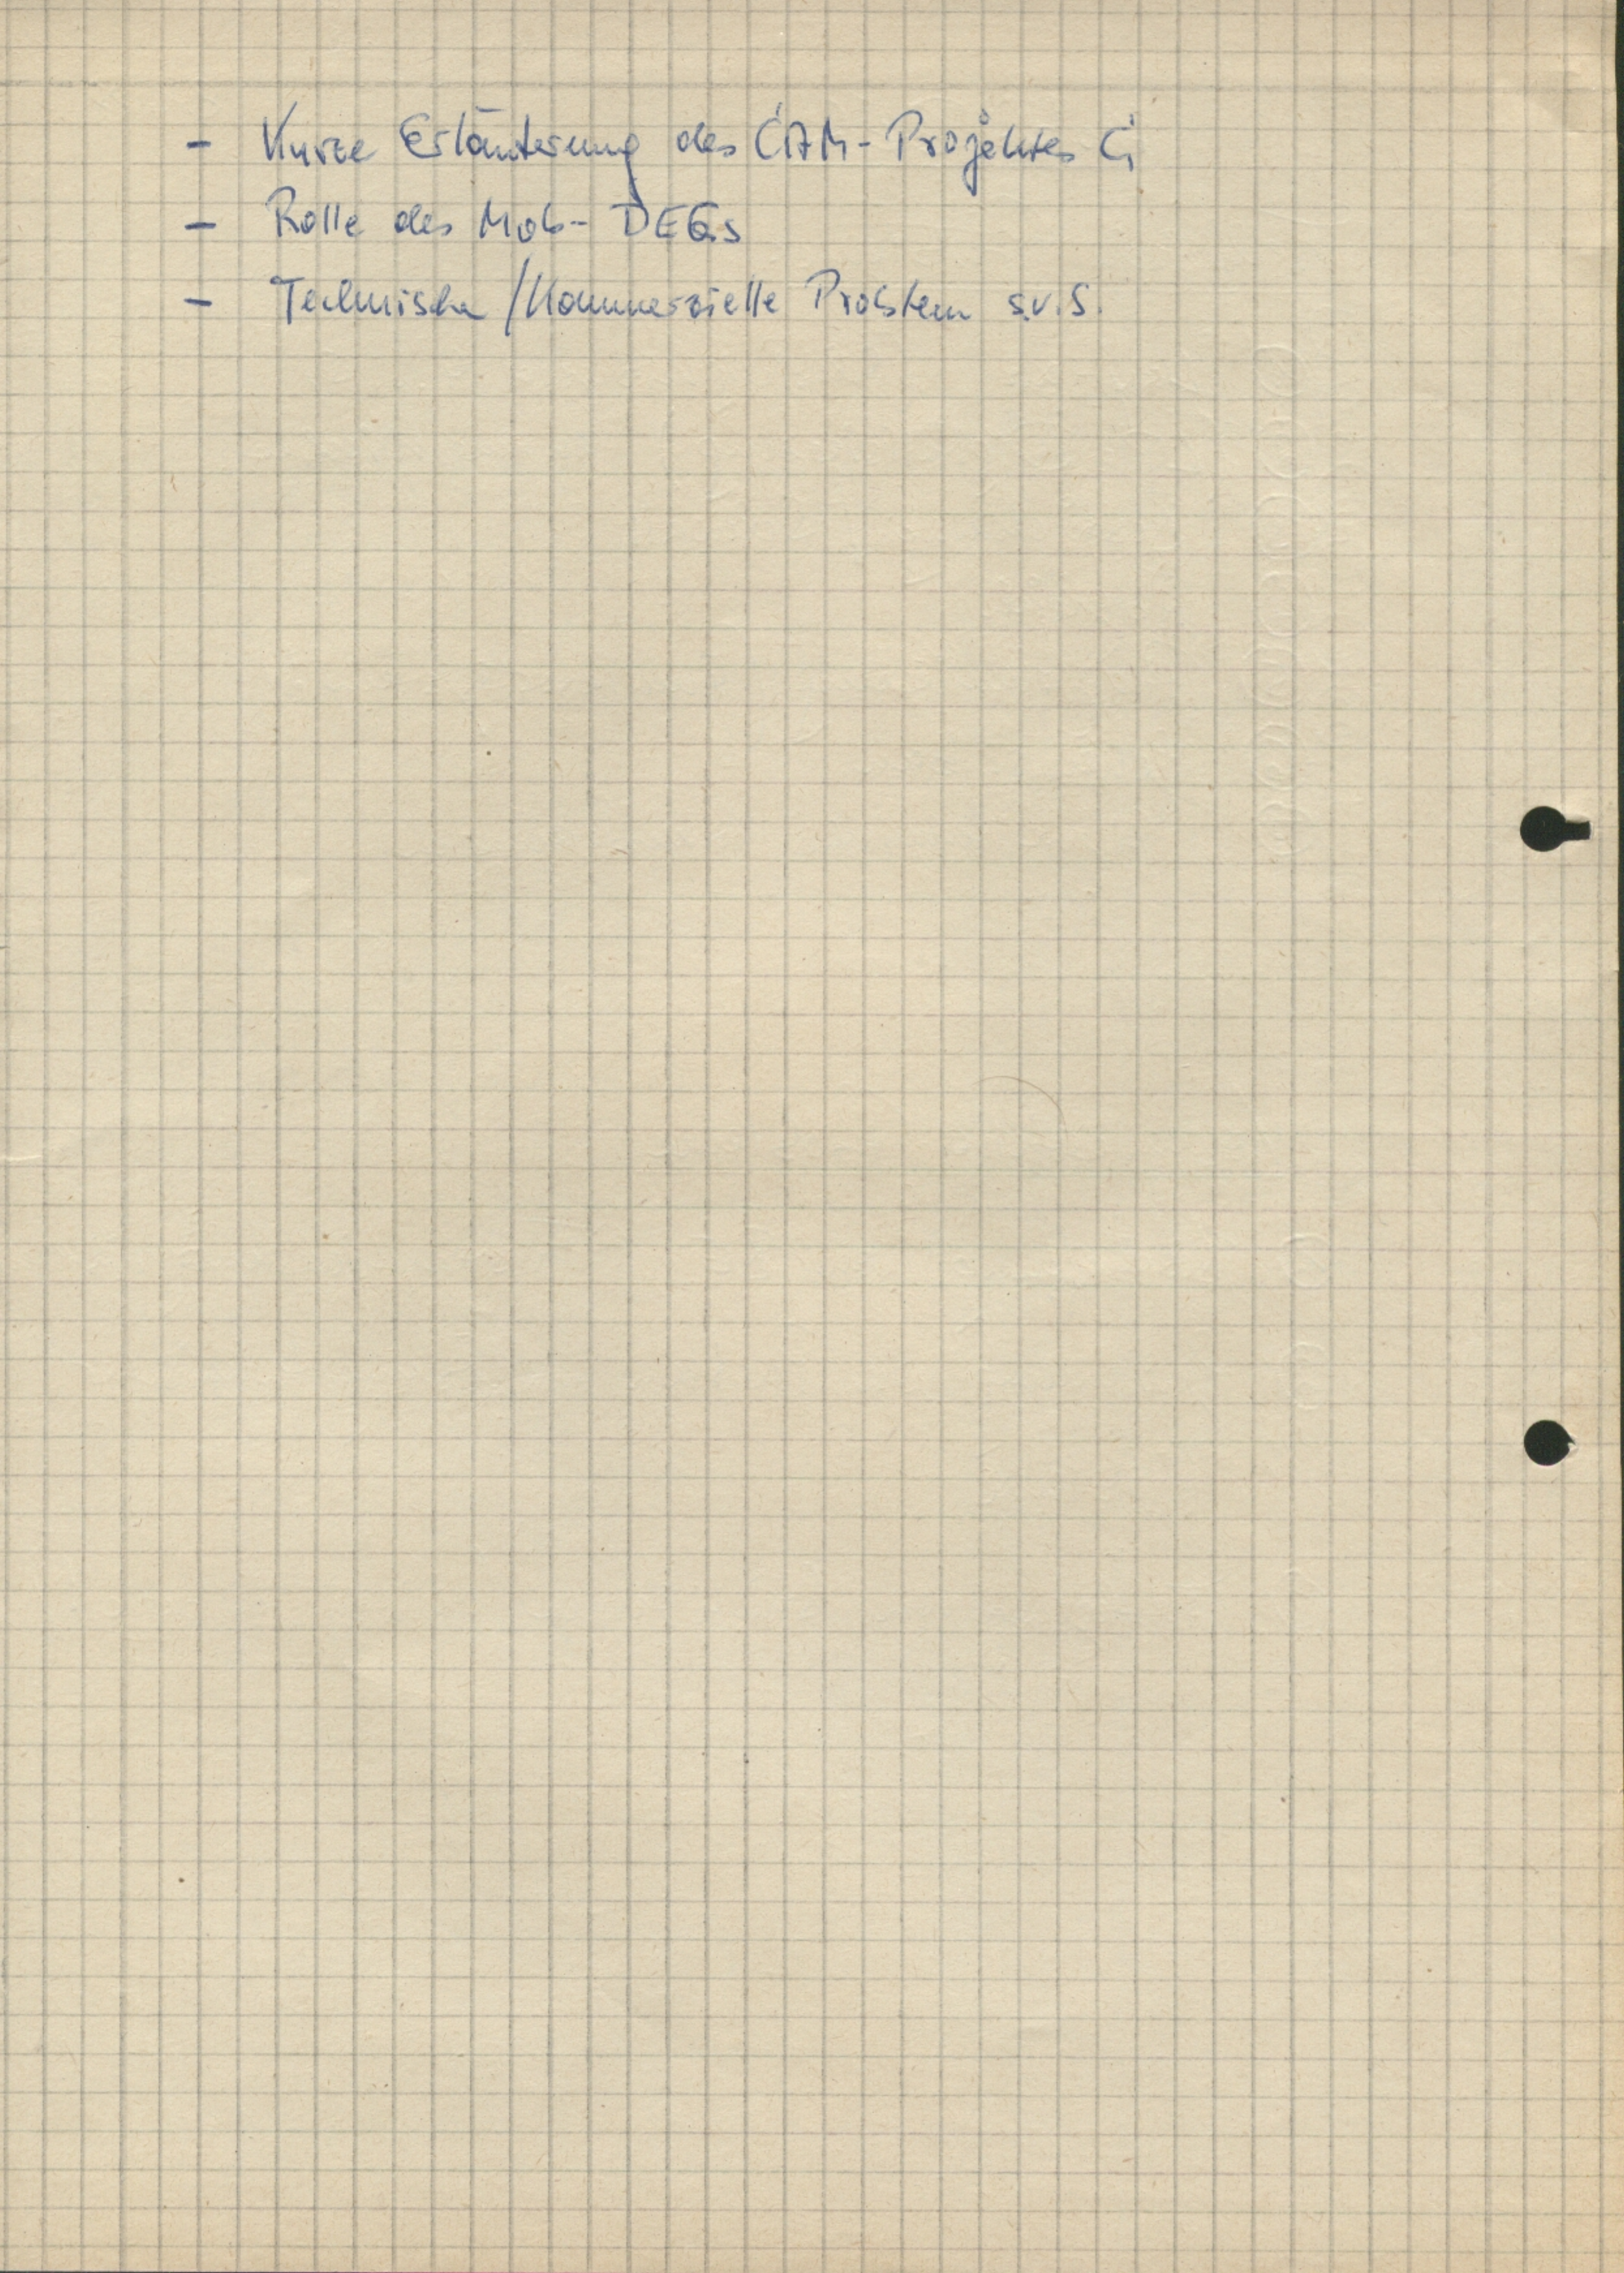 - Kurze Erläuterung des CAM-Projektes
- Rolle des Mob- DEGs
- Technische/Kommerzielle Problem s.v.S.